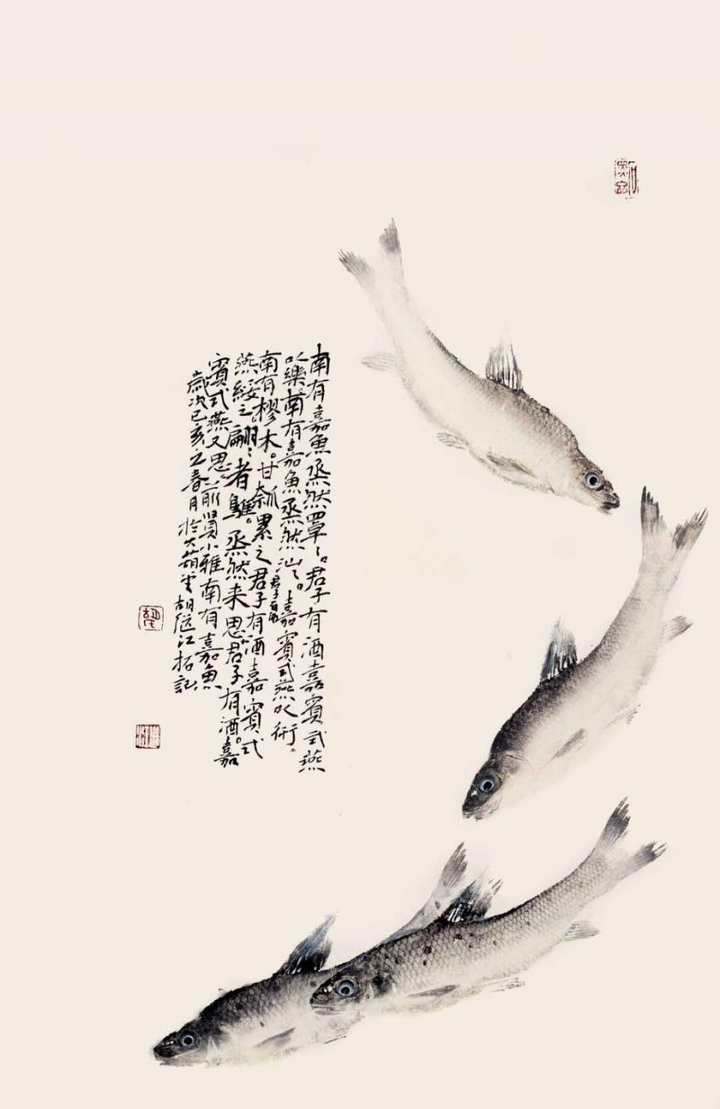 南有嘉魚烝然罩〻。君子有酒嘉賓式燕
以樂。南有嘉魚烝然汕〻。君子有酒嘉賓式燕以衎。
南有樛木。甘瓠累之君子有酒嘉賓式
燕綏之。翩〻者鵻。烝然来思。君子有酒。嘉
賓式燕又思。前賢小雅南有嘉魚
歲次己亥之春月於大葫堂胡江拓記